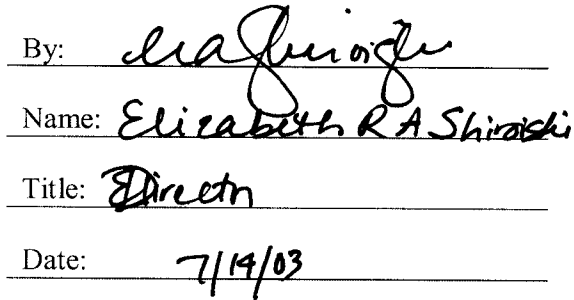 By:
Name: Elizabeth R A Shiroishi
Title: Director
Date: 7/14/03